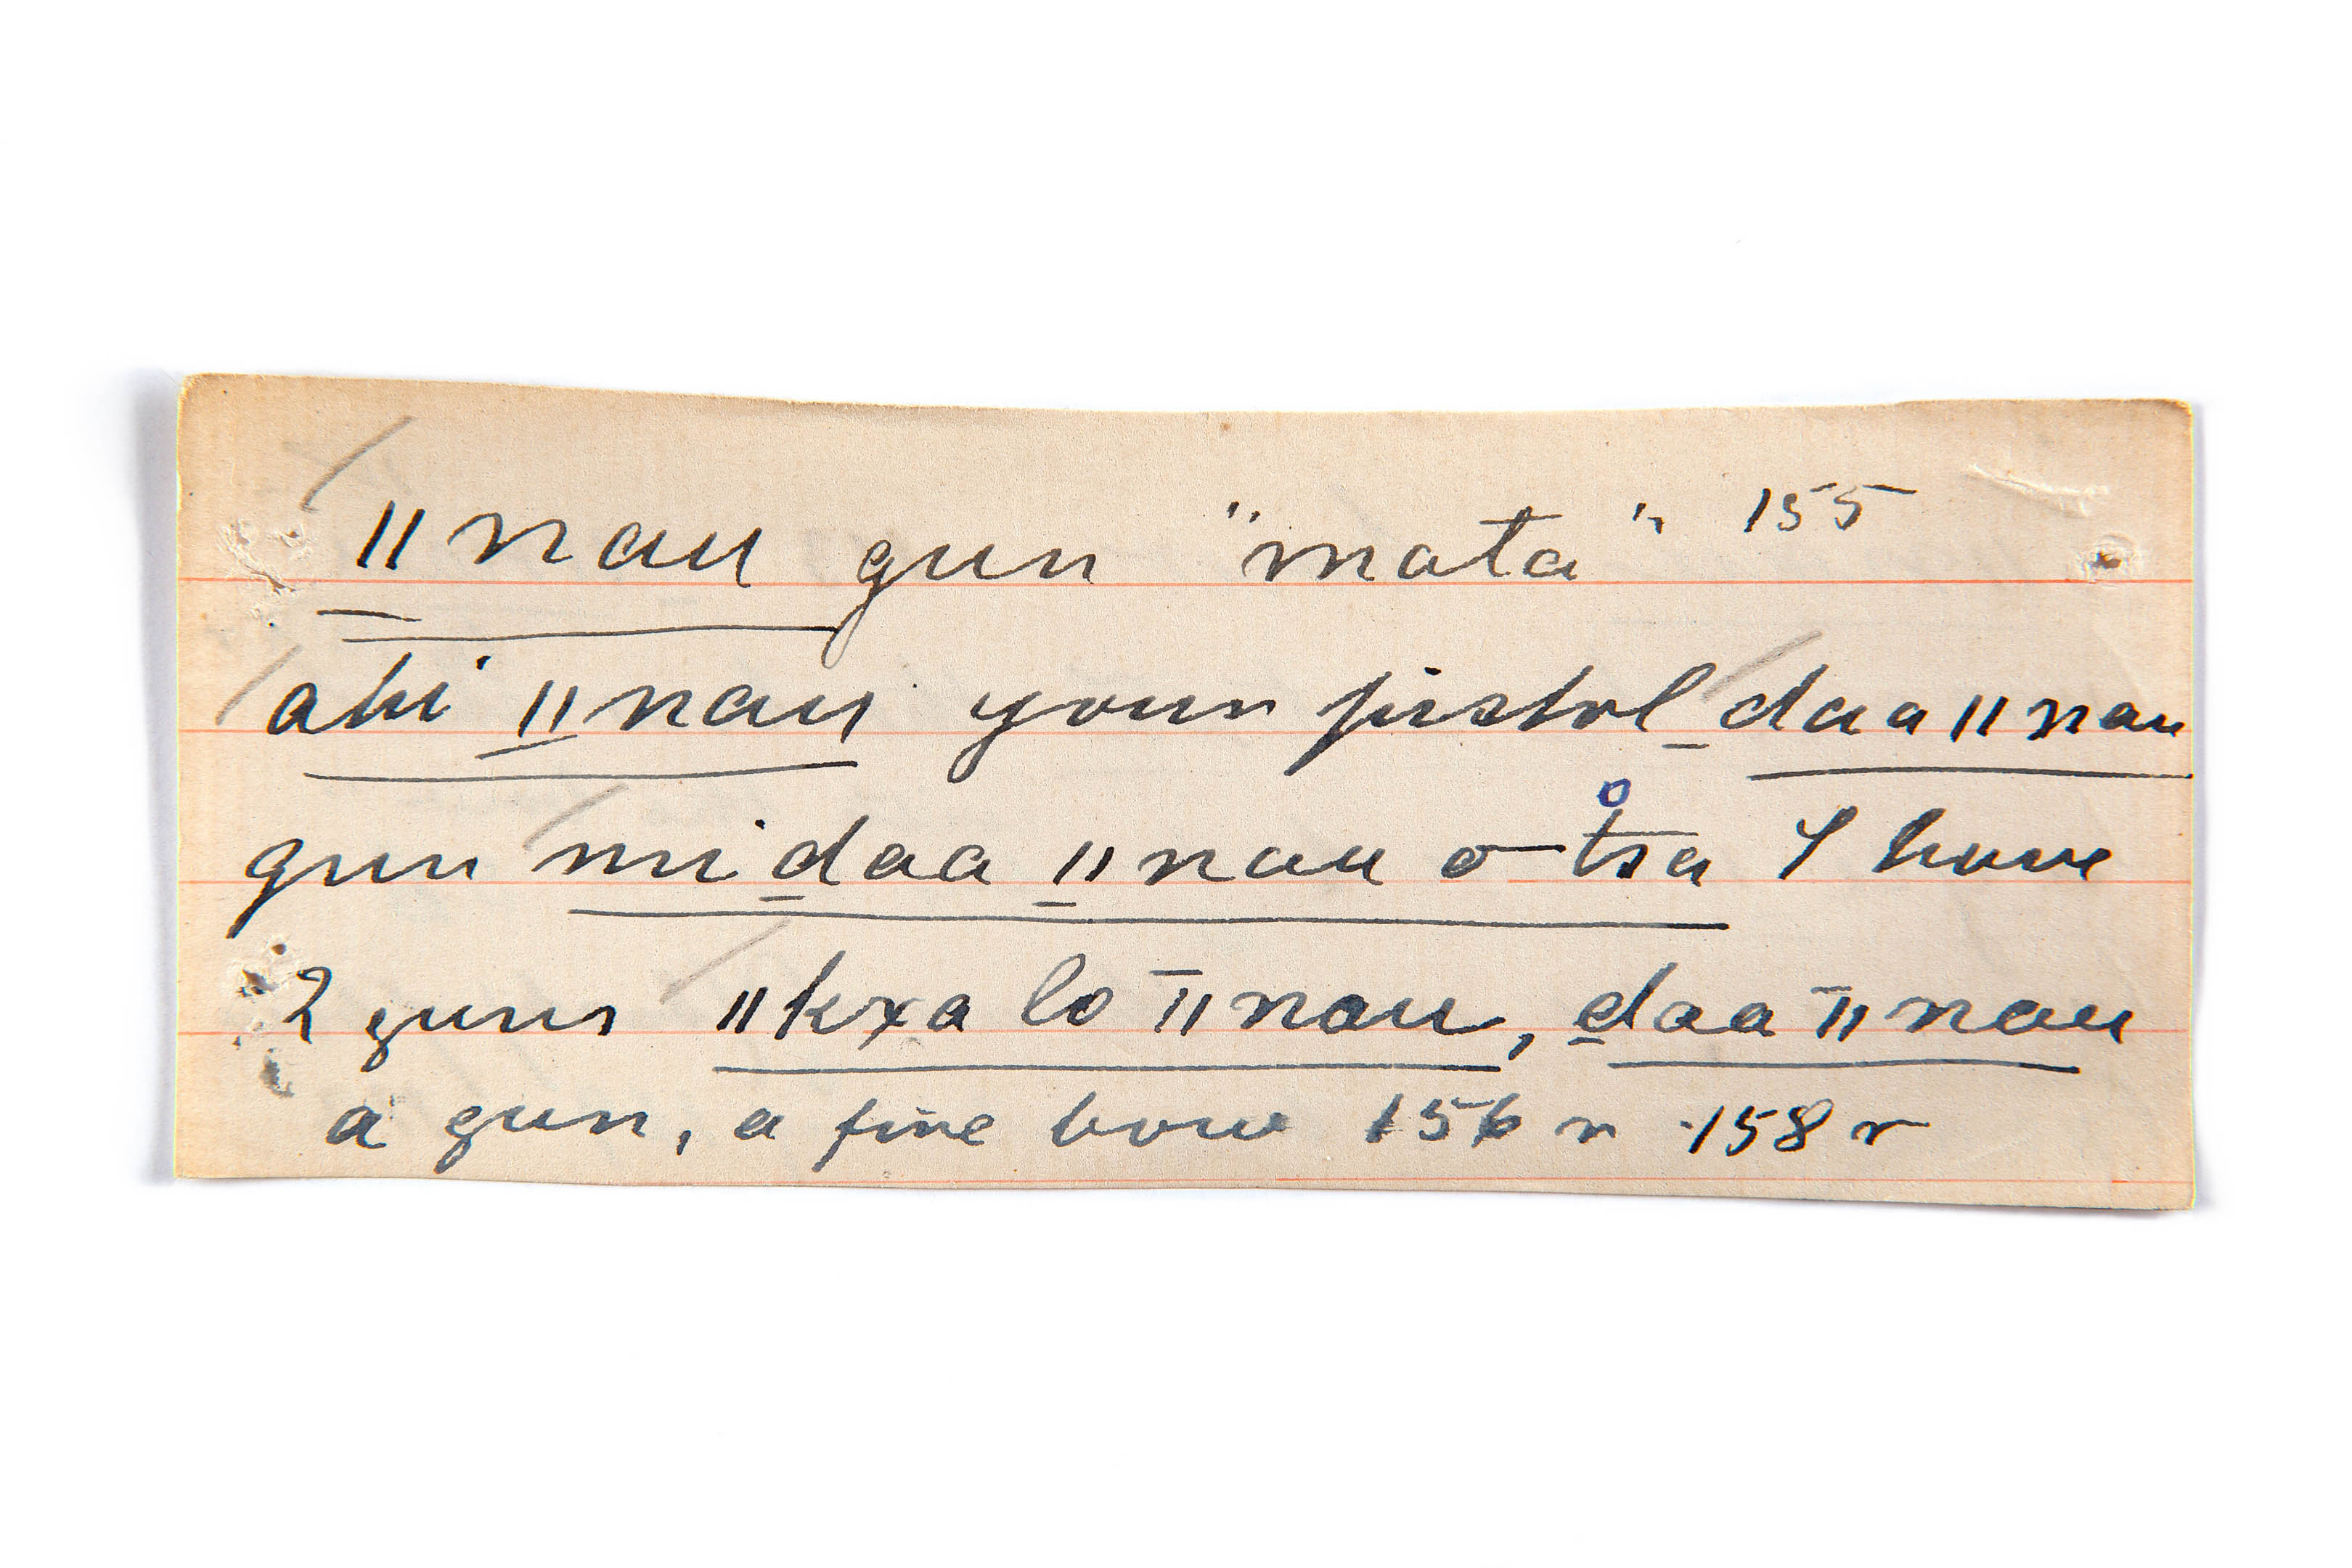 ǁnau gun "mata" 155
ahi ǁnau your pistol daa ǁnau
gun mi daa ǁnau o tsa I have
2 guns ǁkxa lo ǁnau, daa ǁnau
a gun, a fine bow 156 r 158 r